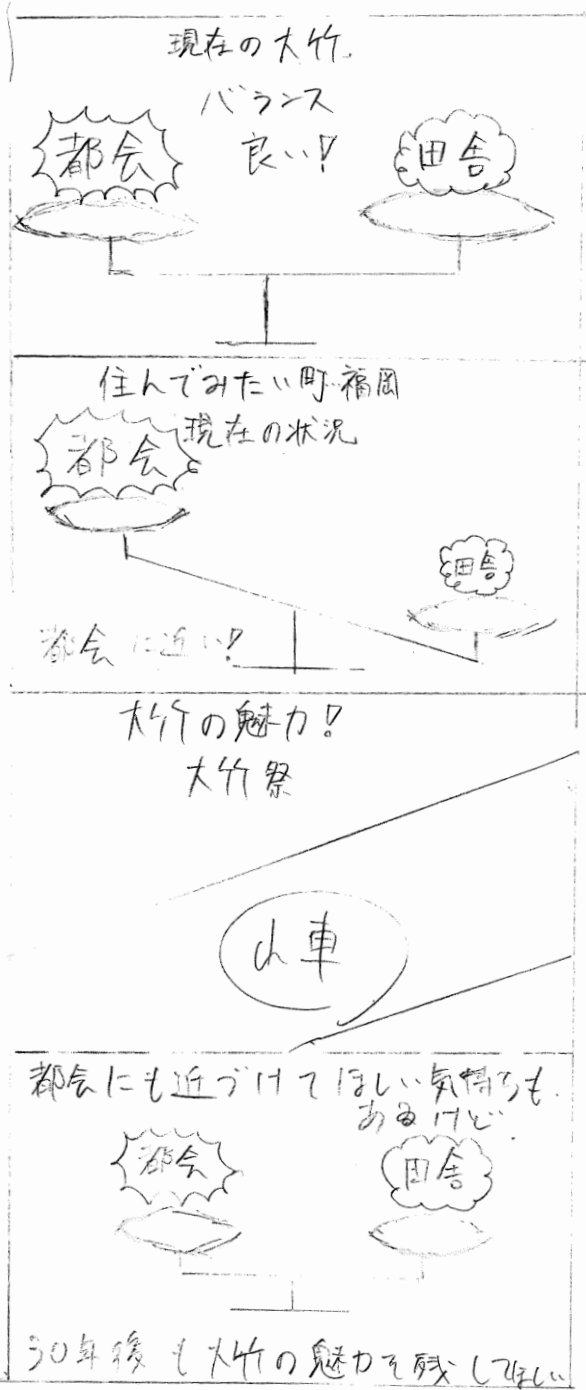 現在の大竹
バランス
良い!
都会
田舎
住んでみたい町 福岡
現在の状況
都会
田舎
都会に近い!
大竹の魅力!
大竹祭
山車
都会にも近づけてほしい気持ちも
あるけど
都会
田舎
30年後も大竹の魅力を残してほしい